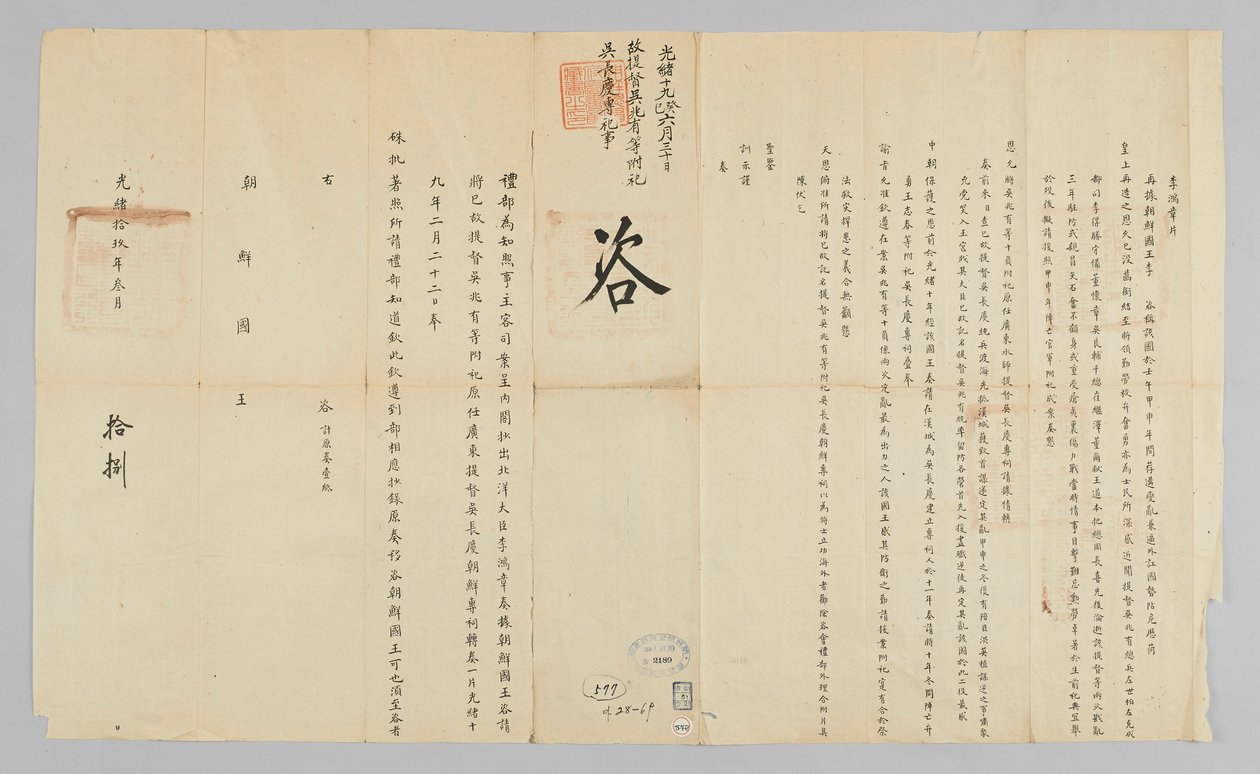 李鴻章片
再據朝鮮國王李 咨稱該國於壬午甲申年間存遭變亂兼遇外訌國勢阽危懸荷
皇上再造之恩矢已沒齒銜結至將領勤勞校弁奮勇亦為士民所深感近聞提督吳兆有總兵左世椎左克成
都司李得勝守備董懷章吳良輔千總莊繼澤董爾猷王道本把總周長喜先後淪逝該提督等兩次戡亂
三年駐防或親冒矢石奮不顧身或重受瘡夷裹傷力戰當時情事目擊難忘勳勞卓著於生前祀典宜舉
於歿後擬請援照甲申年陣亡官軍附祀成案奏懇
恩允將吳兆有等十員附祀原任廣東水師提督吳長慶專祠請據情轉
奏前來臣查已故提督吳長慶統兵渡海先抵漢城獲致首謀遂定其亂甲申之冬復有陪臣洪英植謀逆之事嘯聚
死黨突入王宮戕其大臣已故記名提督吳兆有統率留防各營首先入援盡殲逆徒再定其亂該國於此二役最感
中朝保護之恩前於光緒十年經該國王奏請在漢城為吳長慶建立專祠又於十一年奏請將十年冬間陣亡弁
勇王志春等附祀吳長慶專祠疊奉
諭旨允准欽遵在案吳兆有等十員係兩次定亂最為出力之人該國王感其防衛之勤請援案附祀寔有合於祭
法救災捍患之義合無籲懇
天恩俯准所請將已故記名提督吳兆有等附祀吳長慶朝鮮專祠以為將士立功海外者勸除咨會禮部外理合附片具
陳伏乞
聖鑒
訓示謹
奏
光緒十九癸巳六月三十日
故提督吳兆有等附祀
吳長慶專祀事
咨
2189
577
9.28-64
禮部為知照事主客司案呈內閣抄出北洋大臣李鴻章奏據朝鮮國王咨請
將已故提督吳兆有等附祀原任廣東提督吳長慶朝鮮專祠轉奏一片光緒十
九年二月二十二日奉
硃批著照所請禮部知道欽此欽遵到部相應抄錄原奏移咨朝鮮國王可也須至咨者
右 咨 計原奏壹紙
朝鮮國王
光緒拾玖年叁月 拾捌 日